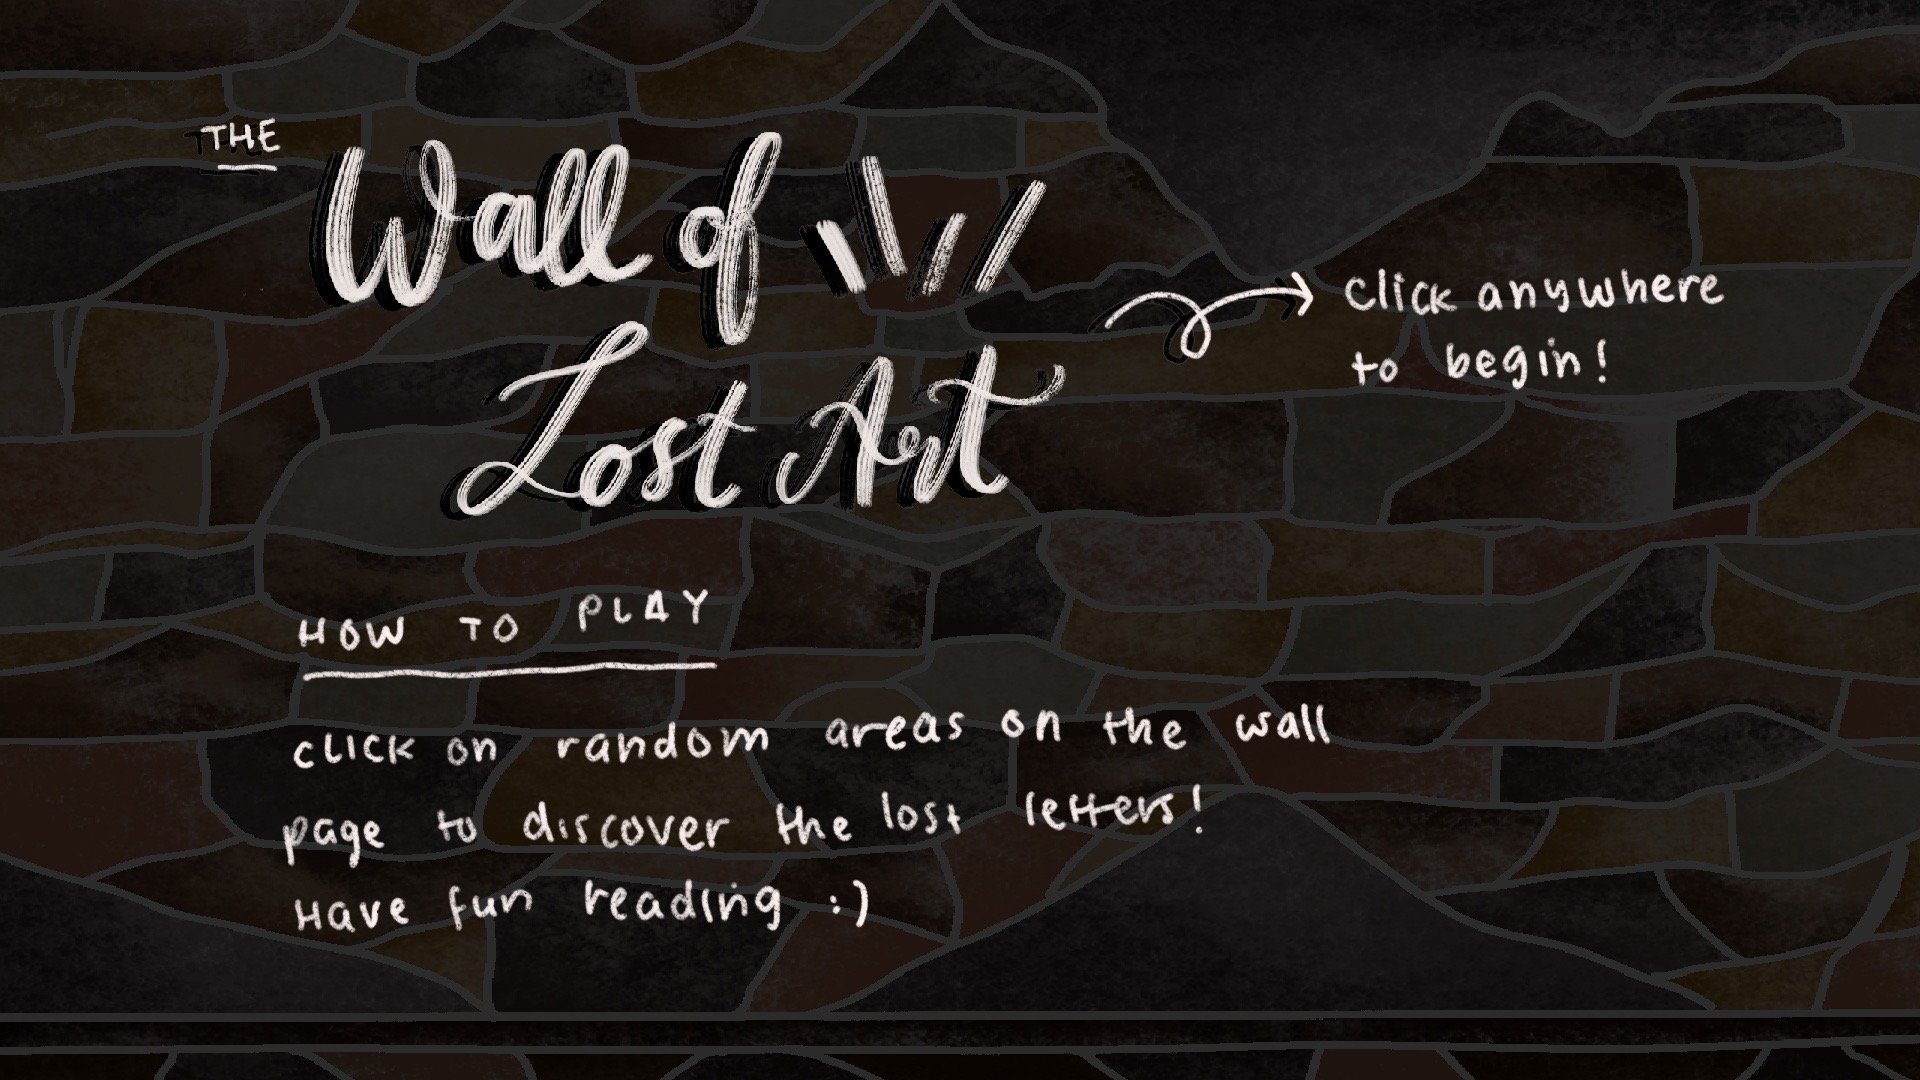 THE
Wall of
Lost Art
click anywhere
to begin!
HOW TO PLAY
click on random areas on the wall
page to discover the lost letters!
Have fun reading :)